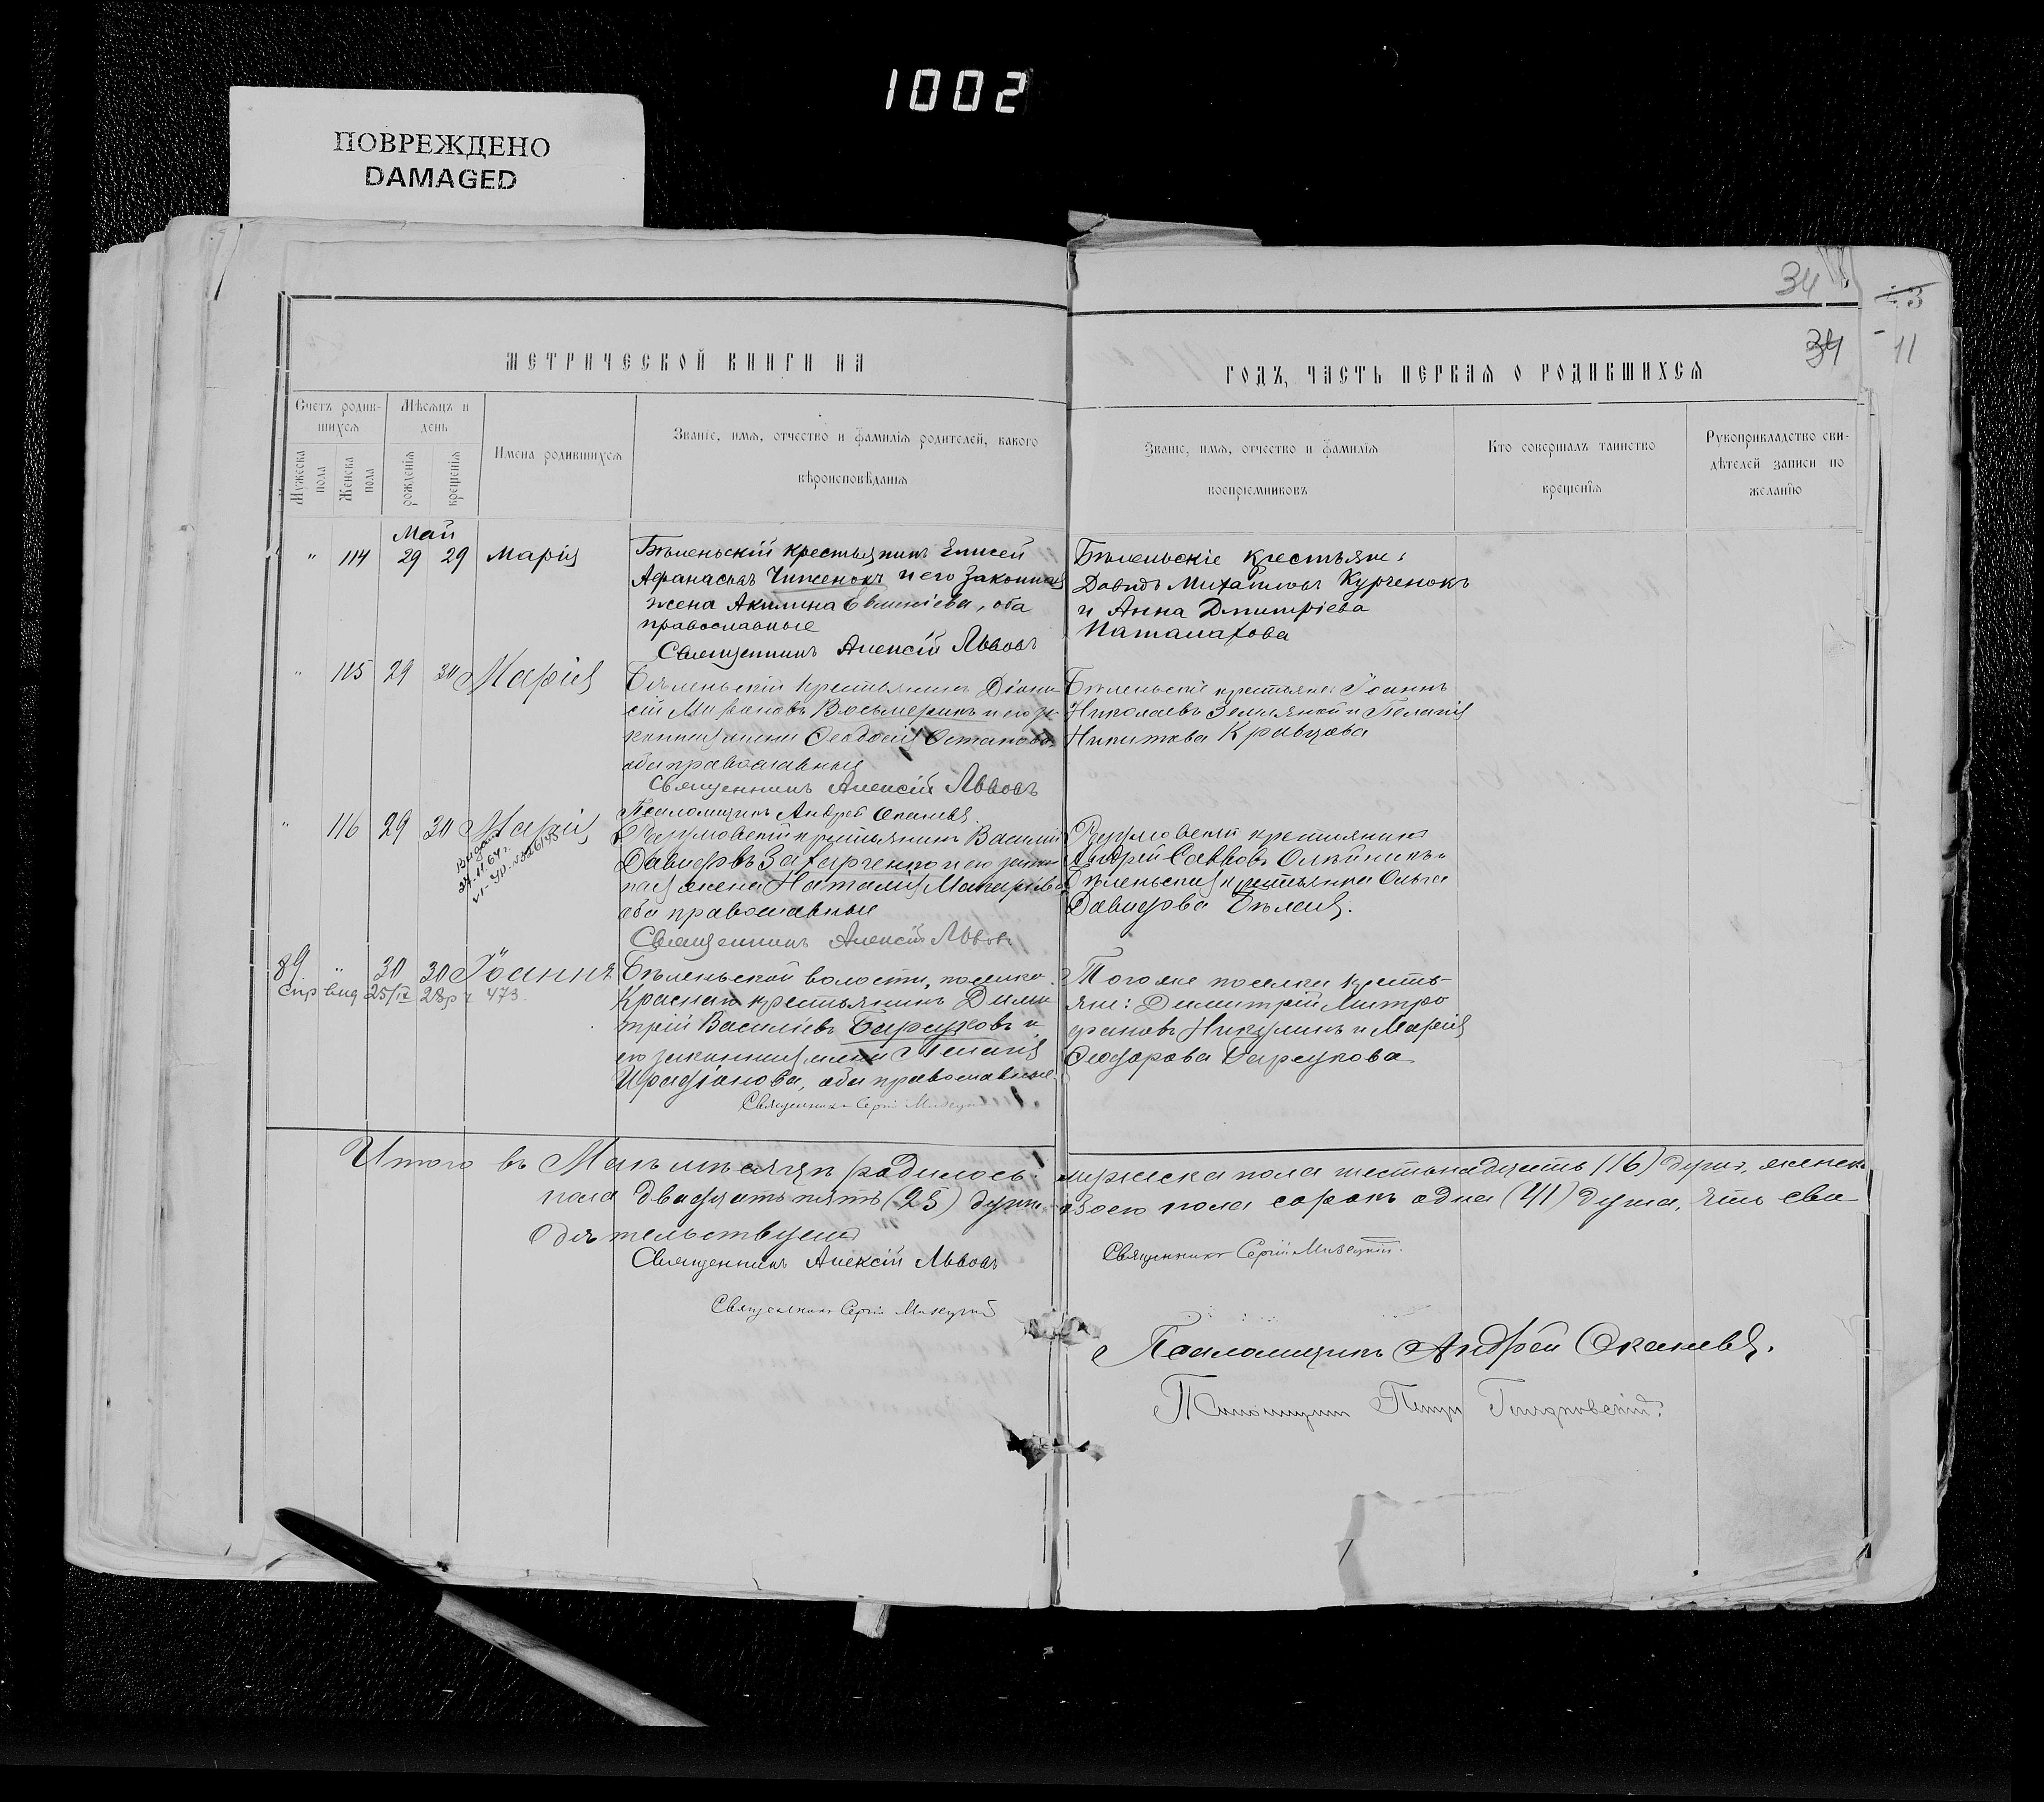 1002
ПОВРЕЖДЕНО
DAMAGED
34
3
34
11
МЕТРИЧЕСКОЙ КНИГИ НА
ГОДЪ, ЧАСТЬ ПЕРВАЯ О РОДИВШИХСЯ
Счетъ родив-
шихся
Мѣсяцъ и
день
Мужеска
пола
Женска
пола
рожденія
крещенія
Имена родившихся
Званіе, имя, отчество и фамилія родителей, какого
вѣроисповѣданія
Званіе, имя, отчество и фамилія
воспріемниковъ
Кто совершалъ таинство
крещенія
Рукоприкладство сви-
дѣтелей записи по
желанію
Май
" 114 29 29 Марія
Бѣленьскій крестьянинъ Елисей
Афанасіевъ Чиженокъ и его законная
жена Акилина Евфиміева, оба
православные
Священникъ Алексій Львовъ
Бѣленьскіе крестьяне:
Давидъ Михаиловъ Курченокъ
и Анна Димитріева
Паталахова
" 115 29 30 Марія
Бѣленьскій крестьянинъ Діони-
сій Мироновъ Восьмерикъ и его за-
конная жена Ѳеодосія
оба православные
Священникъ Алексій Львовъ
Псаломщикъ Андрей
Бѣленьскіе крестьяне: Іоаннъ
Николаевъ Земляной и Пелагія
Никитова Кравцова
" 116 29 30 Марія
Разумовскій крестьянинъ Василій
Давидовъ Захарченко и его закон-
ная жена Наталія Макаріева
оба православные
Священникъ Алексій Львовъ
Разумовскій крестьянинъ
Андрей Саввовъ Олейникъ и
Бѣленьская крестьянка Ольга
Давидова Бѣлая.
89 " 30 30 Іоаннъ
473
Бѣленьской волости, поселка
крестьянинъ Дими-
трій Василіевъ Барсуковъ и
его законная жена Пелагія
Иродіонова, оба православные
Священникъ Сергій
Того же поселка кресть-
яне: Димитрій Митро
фановъ Никулинъ и Марія
Ѳеодорова Барсукова
Итого въ Маѣ мѣсяцѣ родилось: мужеска пола шестьнадцать (16) душъ, женска
пола двадцать пять (25) душъ обоего пола сорокъ одна (41) душа, чть сви
дѣтельствуемъ
Священникъ Алексій Львовъ
Священникъ Сергій
Священникъ Сергій
Псаломщикъ Андрей
Псаломщикъ Петръ